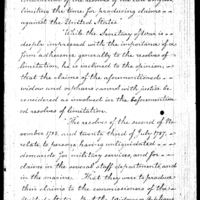 limiting the time for producing claims
against the United States"
"While the Secretary of war is
deeply impressed with the importance of a
firm adherence generally to the resolves
of limitation, he is inclined to the opinion,
that the claims of the aforementioned
widow and orphans cannot with justice be
considered as involved in the
resolves of limitation.
"The resolves of the second of No
vember 1785. and twenty third of July 1787.
relate to persons having unliquidated
demands for military services, and for
claims in the several staff departments, and
in the marine. That they were to produce
their claims to the commissioners of the